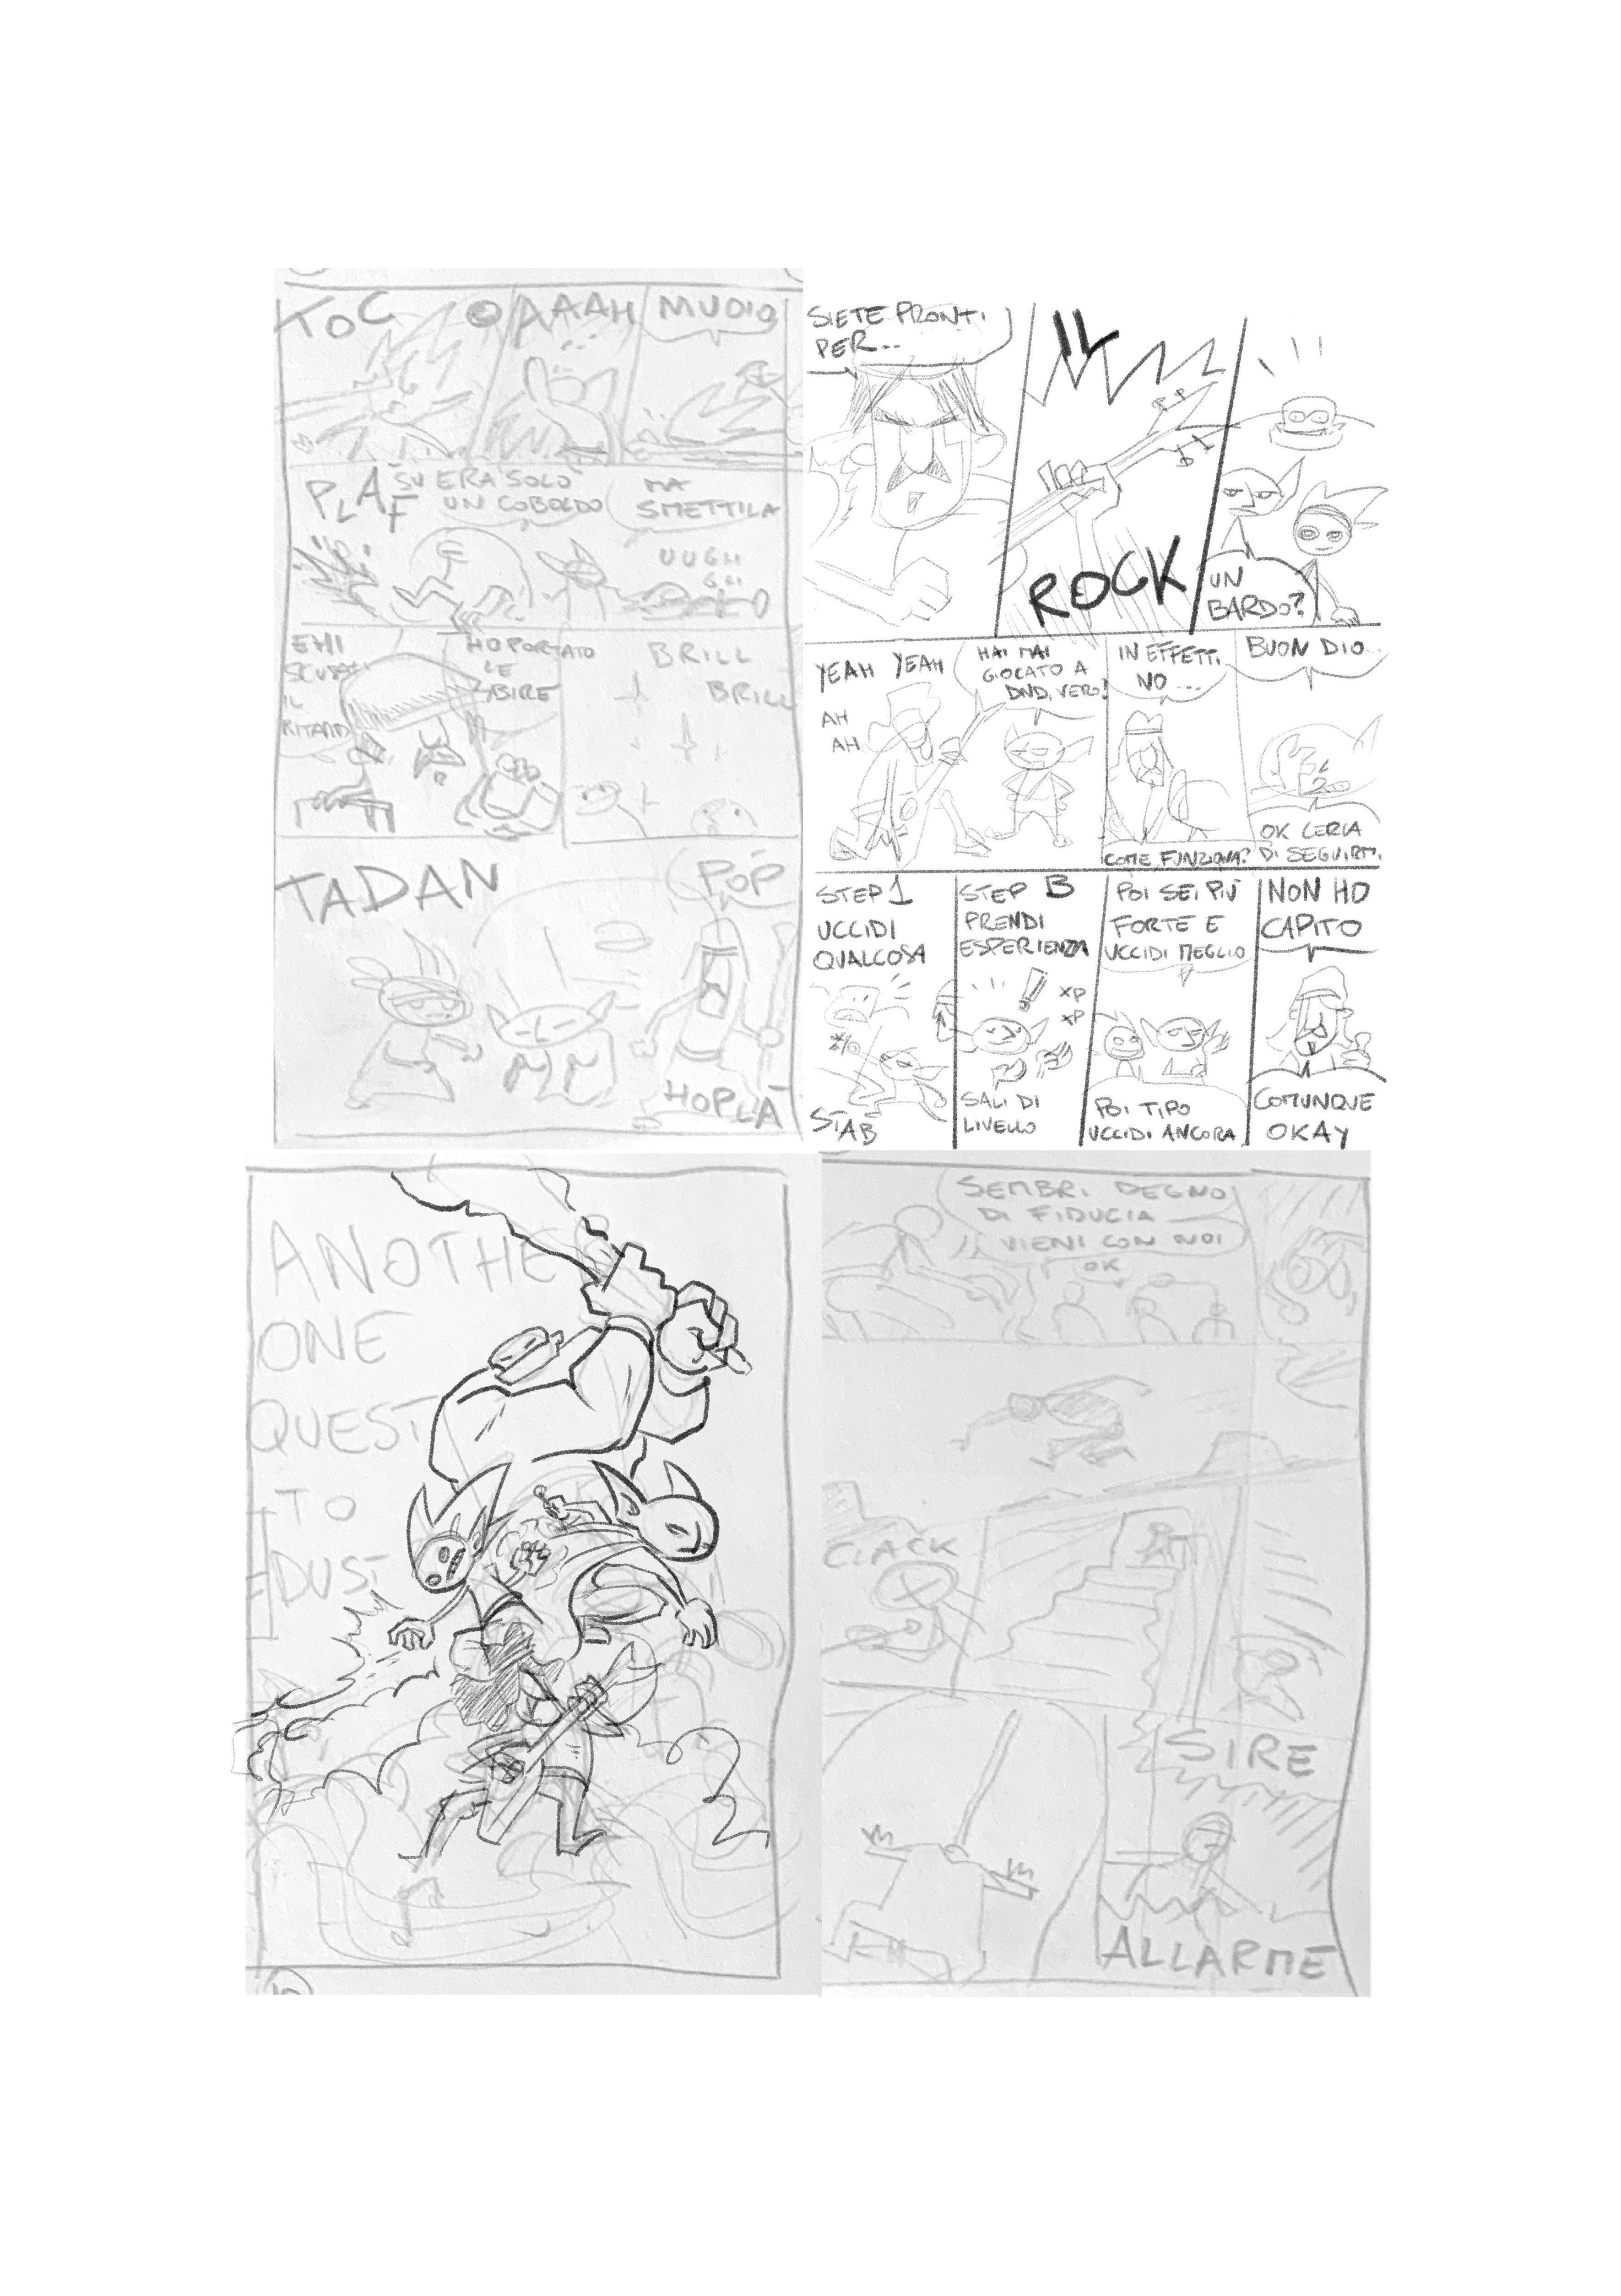 TOC
AAAH
MUOIO
PLAF
SU ERA SOLO
UN COBOLDO
MA
SMETTILA
UUGH
EHI
SCUSA
IL
RITARDO
HO PORTATO
LE
BIRE
BRILL
BRILL
TADAN
POP
HOPLA
SIETE PRONTI
PER...
IL
ROCK
UN
BARDO?
YEAH YEAH
AH
AH
HAI MAI
GIOCATO A
DND, VERO?
IN EFFETTI
NO...
COME FUNZIONA?
BUON DIO...
OK CERCA
DI SEGUIRMI
STEP 1
UCCIDI
QUALCOSA
STAB
STEP B
PRENDI
ESPERIENZA
XP
XP
SALI DI
LIVELLO
POI SEI PIÙ
FORTE E
UCCIDI MEGLIO
POI TIPO
UCCIDI ANCORA
NON HO
CAPITO
COMUNQUE
OKAY
ANOTHE
ONE
QUEST
TO
DUST
SEMBRI DEGNO
DI FIDUCIA
VIENI CON NOI
OK
CLACK
SIRE
ALLARME